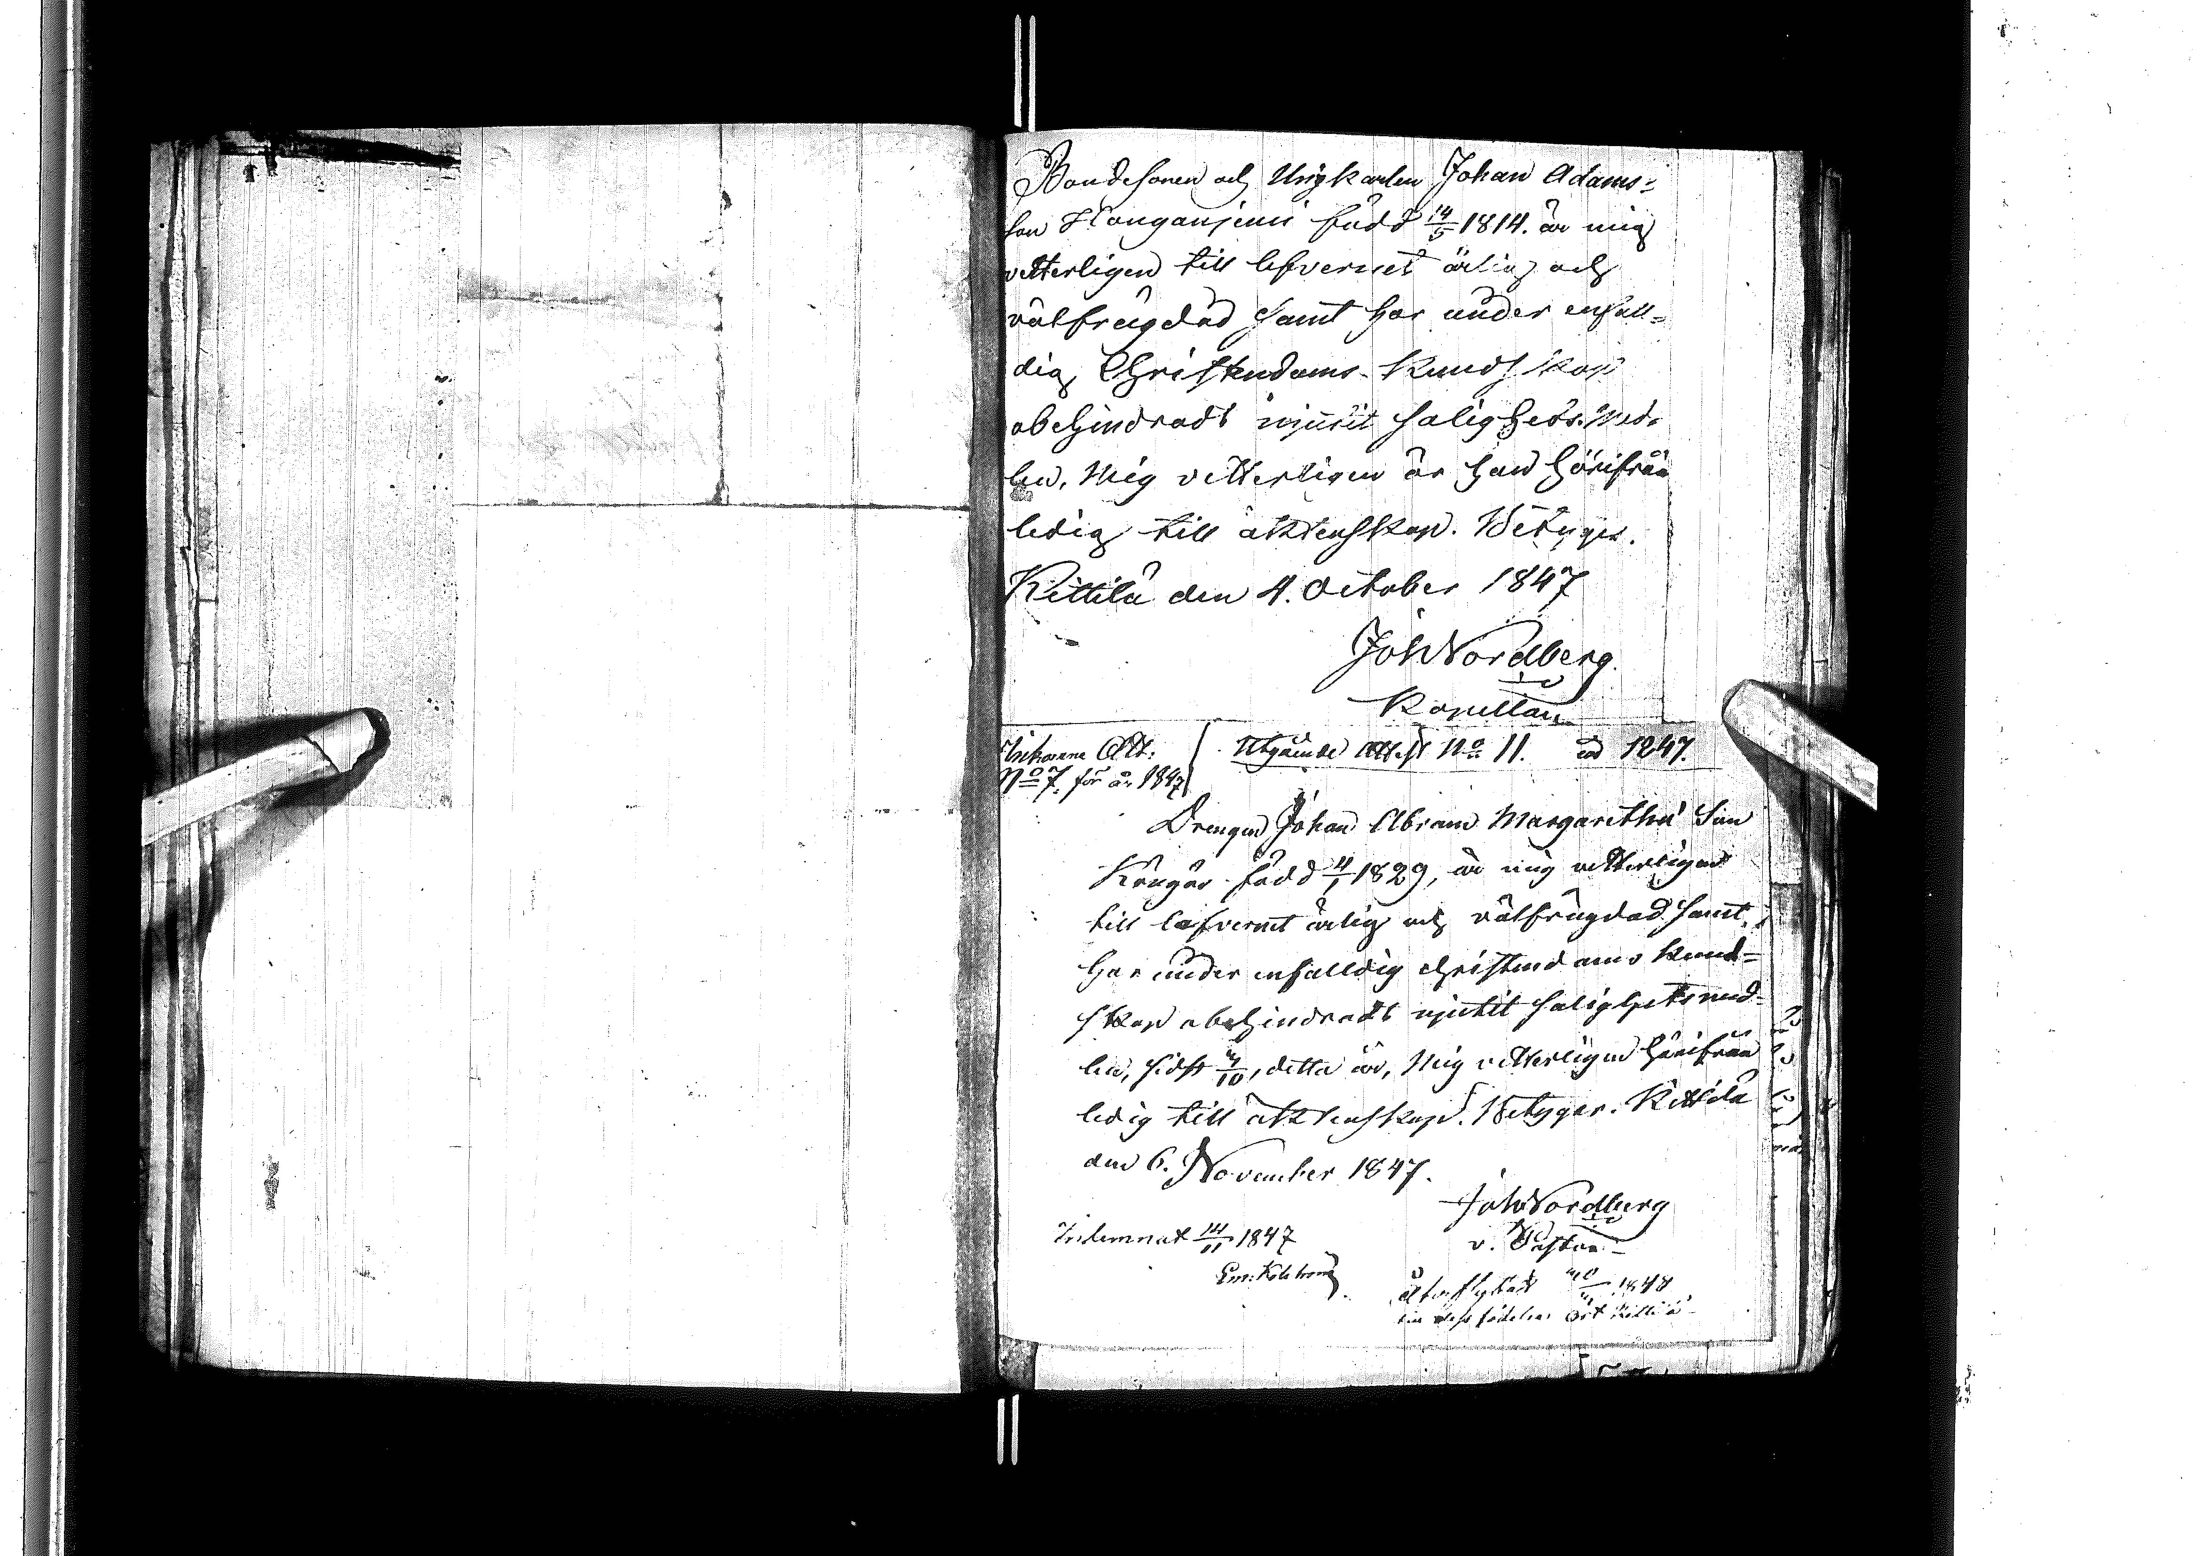 Bondesonen och Ungkarlen Johan Adams-
son Honganjemi född 14/5 1814. är mig
vetterligen till lefvernet ärlig och
välfrägdad samt har under enfall-
dig Christendoms-Kundskap
obehindradt njutit salighets-med-
len, Mig vetterligen är han härifrån
ledig till äktenskap. Betyger.
Kittilä den 4. October 1847
Joh Nordberg.
Kapellan
Inkomne Att.
No 7. för år 1847
Utgående Attest No 11. 1847.
Drengen Johan Abram Margaretha Son
Köngäs född 4/1 1829, är mig vetterligen
till lefvernet ärlig och välfrägdad samt
har under enfalldig christendoms kund-
skap obehindradt njutit salighetsmed-
len, sidst /10, detta år, Mig vetterligen härifrån
ledig till äktenskap. Betyger. Kittilä
den 6. November 1847.
Joh Nordberg
v. Pastor
Inlemnat 14/11 1847
Em: Kolström
Återflyttat 1848
till dess födelse Ort Kittilä